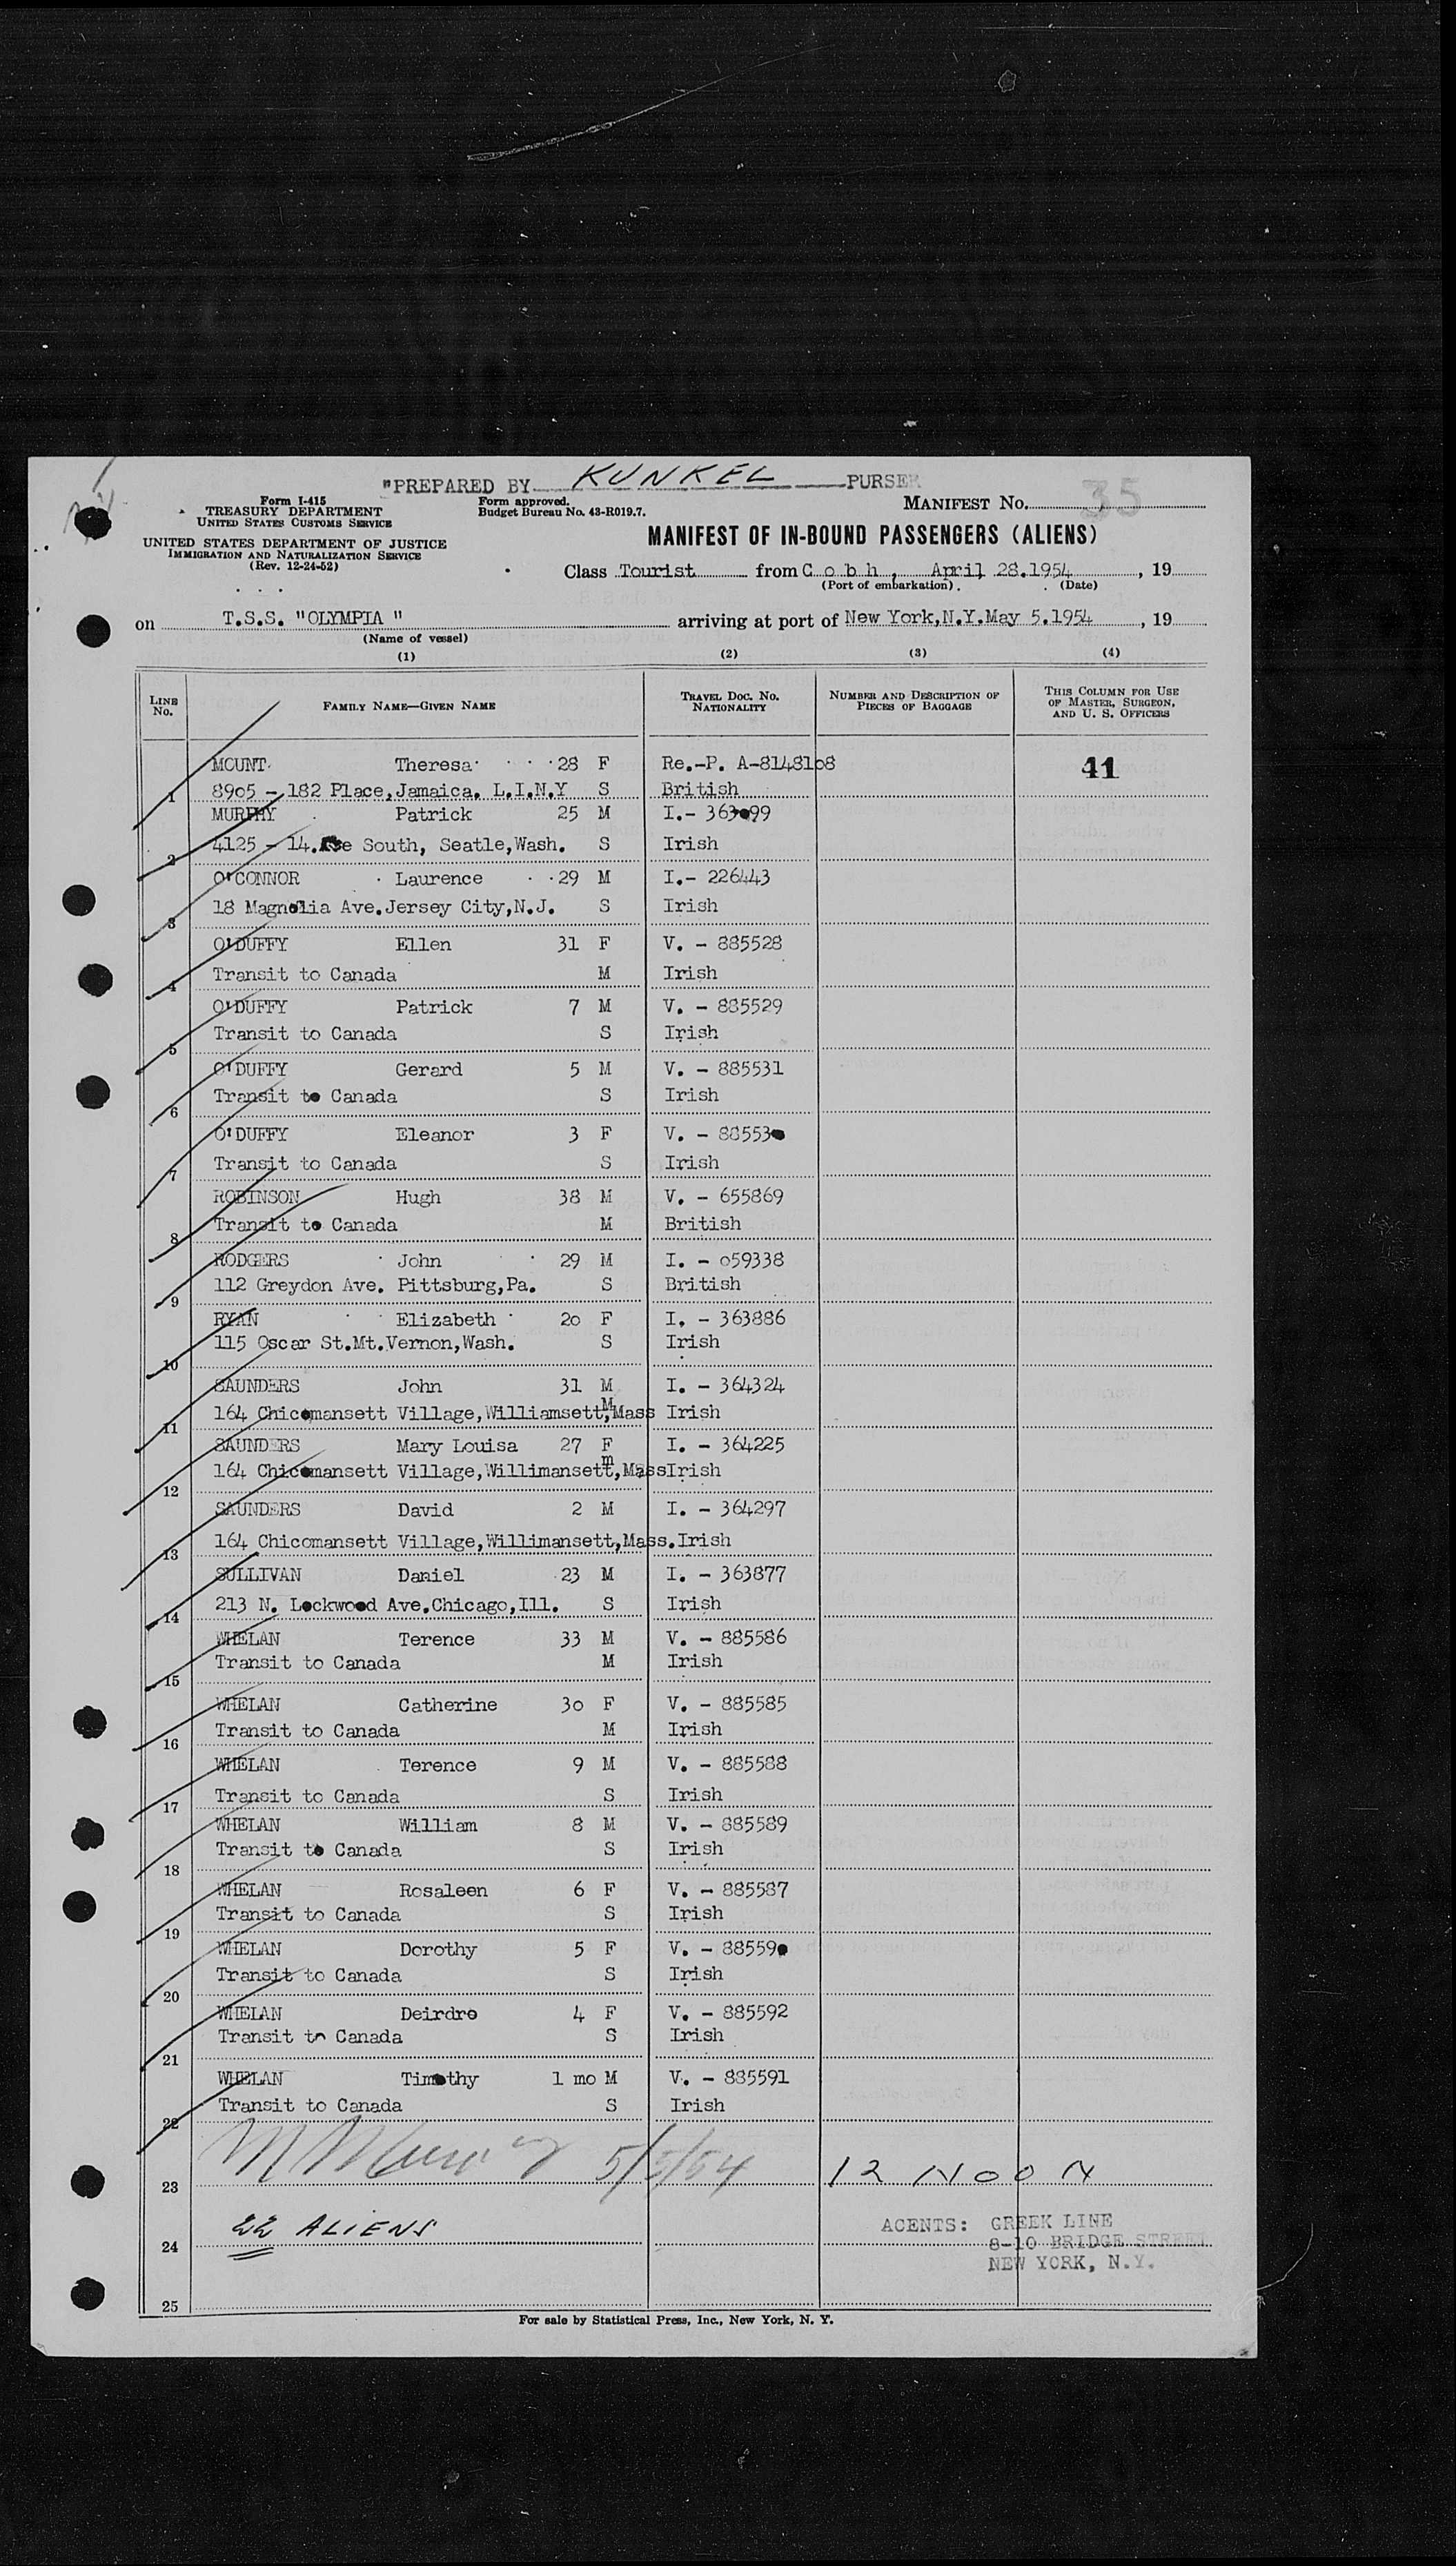 "PREPARED BY KUNKEL PURSER
Form I-415
TREASURY DEPARTMENT
UNITED STATES CUSTOMS SERVICE
Form approved.
Budget Bureau No. 43-R019.7.
MANIFEST No. 35
UNITED STATES DEPARTMENT OF JUSTICE
IMMIGRATION AND NATURALIZATION SERVICE
(Rev. 12-24-52)
MANIFEST OF IN-BOUND PASSENGERS (ALIENS)
Class Tourist from Cobh, April 28.1954, 19
(Port of embarkation) (Date)
on T.S.S. "OLYMPIA" arriving at port of New York,N.Y.May 5.1954, 19
(Name of vessel)
(1) (2) (3) (4)
LINE No. FAMILY NAME—GIVEN NAME TRAVEL DOC. NO. NATIONALITY NUMBER AND DESCRIPTION OF PIECES OF BAGGAGE THIS COLUMN FOR USE OF MASTER, SURGEON, AND U. S. OFFICERS
MOUNT Theresa 28 F Re.-P. A-8148108 41
1 8905 - 182 Place,Jamaica. L.I.N.Y S British
MURPHY Patrick 25 M I.- 363099
2 4125 - 14.Ave South, Seatle,Wash. S Irish
O'CONNOR Laurence 29 M I.- 226443
3 18 Magnolia Ave.Jersey City,N.J. S Irish
O'DUFFY Ellen 31 F V. - 885528
4 Transit to Canada M Irish
O'DUFFY Patrick 7 M V. - 885529
5 Transit to Canada S Irish
O'DUFFY Gerard 5 M V. - 885531
6 Transit to Canada S Irish
O'DUFFY Eleanor 3 F V. - 885530
7 Transit to Canada S Irish
ROBINSON Hugh 38 M V. - 655869
8 Transit to Canada M British
RODGERS John 29 M I. - 059338
9 112 Greydon Ave. Pittsburg,Pa. S British
RYAN Elizabeth 20 F I. - 363886
10 115 Oscar St.Mt.Vernon,Wash. S Irish
SAUNDERS John 31 M I. - 364324
11 164 Chicomansett Village,Williamsett,Mass M Irish
SAUNDERS Mary Louisa 27 F I. - 364225
12 164 Chicomansett Village,Willimansett,Mass m Irish
SAUNDERS David 2 M I. - 364297
13 164 Chicomansett Village,Willimansett,Mass. Irish
SULLIVAN Daniel 23 M I. - 363877
14 213 N. Lockwood Ave.Chicago,Ill. S Irish
WHELAN Terence 33 M V. - 885586
15 Transit to Canada M Irish
WHELAN Catherine 30 F V. - 885585
16 Transit to Canada M Irish
WHELAN Terence 9 M V. - 885588
17 Transit to Canada S Irish
WHELAN William 8 M V. - 885589
18 Transit to Canada S Irish
WHELAN Rosaleen 6 F V. - 885587
19 Transit to Canada S Irish
WHELAN Dorothy 5 F V. - 885590
20 Transit to Canada S Irish
WHELAN Deirdre 4 F V. - 885592
21 Transit to Canada S Irish
WHELAN Timothy 1 mo M V. - 885591
22 Transit to Canada S Irish
23 5/5/54 12 NOON
22 ALIENS
AGENTS: GREEK LINE
24 8-10 BRIDGE STREET
NEW YORK, N.Y.
25
For sale by Statistical Press, Inc., New York, N. Y.